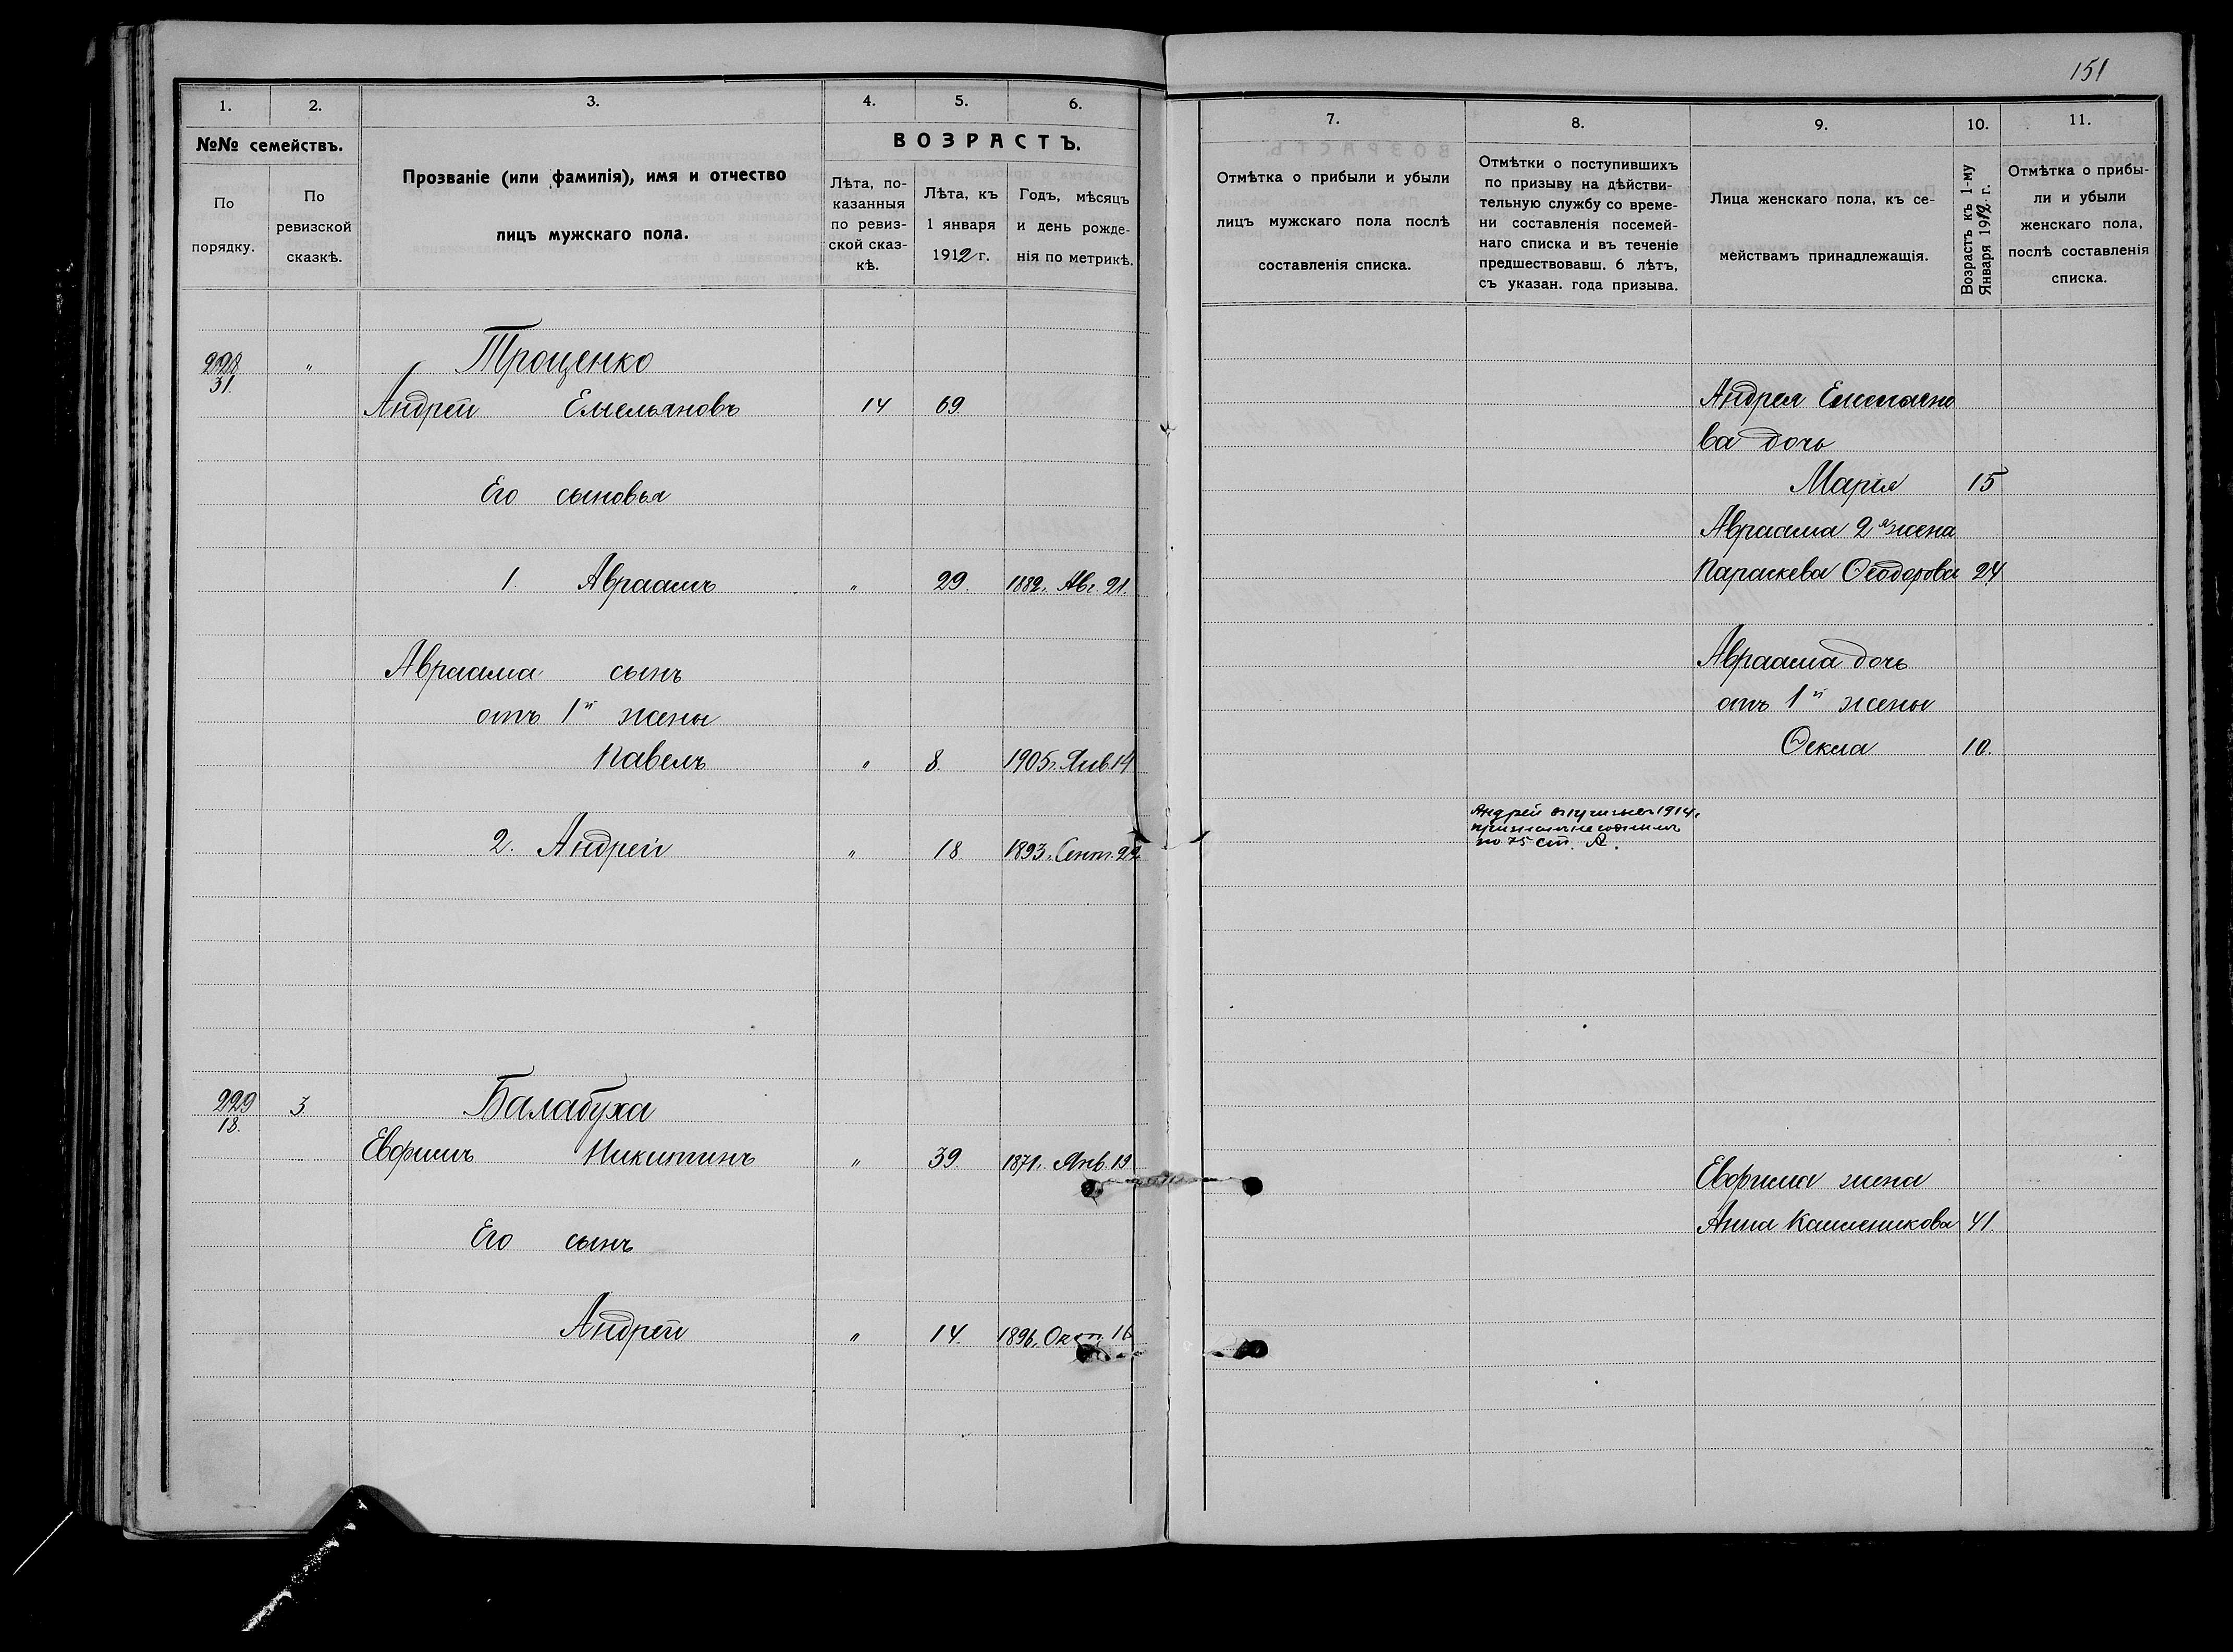 151
1. 2. 3. 4. 5. 6.
№№ семействъ.
По порядку.
По ревизской сказкѣ.
Прозваніе (или фамилія), имя и отчество
лицъ мужскаго пола.
ВОЗРАСТЪ.
Лѣта, по-
казанныя
по ревиз-
ской сказ-
кѣ.
Лѣта, къ
1 января
1912 г.
Годъ, мѣсяцъ
и день рожде-
нія по метрикѣ.
228 " Троценко
31.
Андрей Емельяновъ 14 69
Его сыновья
1. Авраамъ " 29. 1882. Авг. 21.
Авраама сынъ
отъ 1й жены
Павелъ " 8. 1905г. Янв. 14
2. Андрей " 18 1893. Сент. 22
229 3 Балабуха
18.
Евфимъ Никитинъ " 39. 1871. Янв. 19
Его сынъ
Андрей " 14. 1896. Окт. 16
7. 8. 9. 10. 11.
Отмѣтка о прибыли и убыли
лицъ мужскаго пола послѣ
составленія списка.
Отмѣтки о поступившихъ
по призыву на дѣйстви-
тельную службу со време-
ни составленія посемей-
наго списка и въ теченіе
предшествовавш. 6 лѣтъ,
съ указан. года призыва.
Лица женскаго пола, къ се-
мействамъ принадлежащія.
Возрастъ къ 1-му
Января 1912 г.
Отмѣтка о прибы-
ли и убыли
женскаго пола,
послѣ составленія
списка.
Андрея Емельяно
ва дочь
Марія 15
Авраама 2я жена
Параскева Ѳеодорова 24
Авраама дочь
отъ 1й жены
Ѳекла 10.
Андрей 1914г.
признанъ негоднымъ
по 75 ст. А.
Евфима жена
Анна 41.